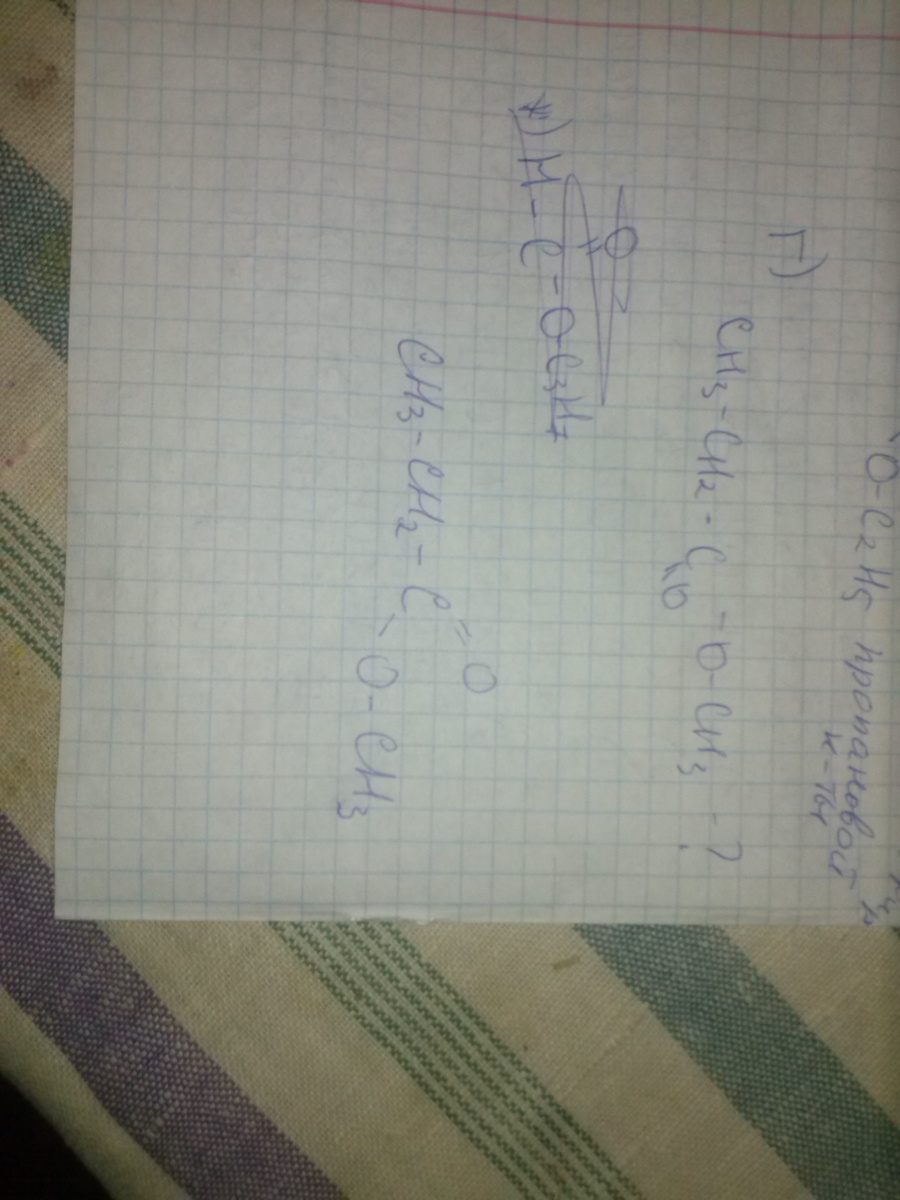 O-C2H5 пропановой
к-ты
Г)
CH3-CH2-C-O-CH3-?
O
O
ж) H-C-OC3H7
O
CH3-CH2-C
O-CH3